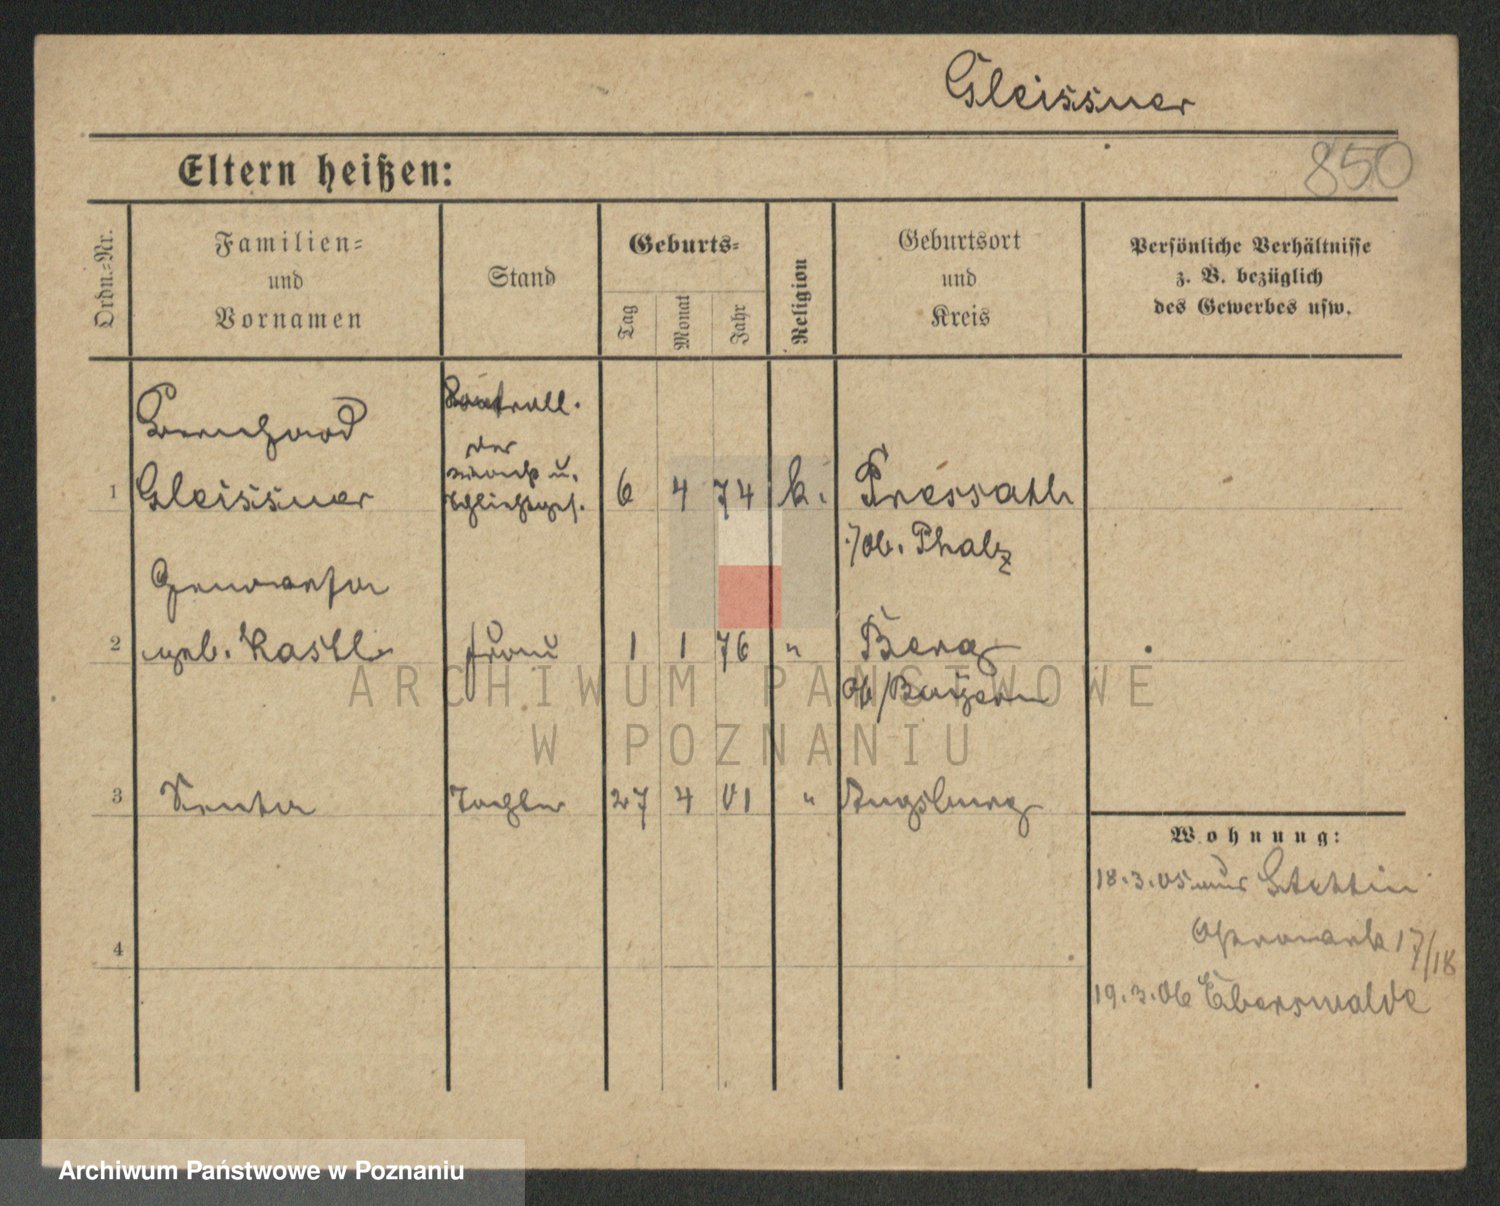 Gleissner
850
Eltern heißen:
Ordn.=Nr.
Familien=
und
Vornamen
Stand
Geburts=
Tag
Monat
Jahr
Religion
Geburtsort
und
Kreis
Persönliche Verhältnisse
z. B. bezüglich
des Gewerbes usw.
Bernhard
Kontroll.
der
Wach u.
Schließges.
1 Gleissner 6 4 74 k. Pressath
/ob. Phalz
Genovefa
2 geb. Kastl Frau 1 1 76 " Berg
Ob/Bayern
3 Senta Tochter 27 4 01 " Augsburg
Wohnung:
18.3.05 aus Stettin
17/18
19.3.06 Eberswalde
4
ARCHIWUM PAŃSTWOWE
W POZNANIU
Archiwum Państwowe w Poznaniu